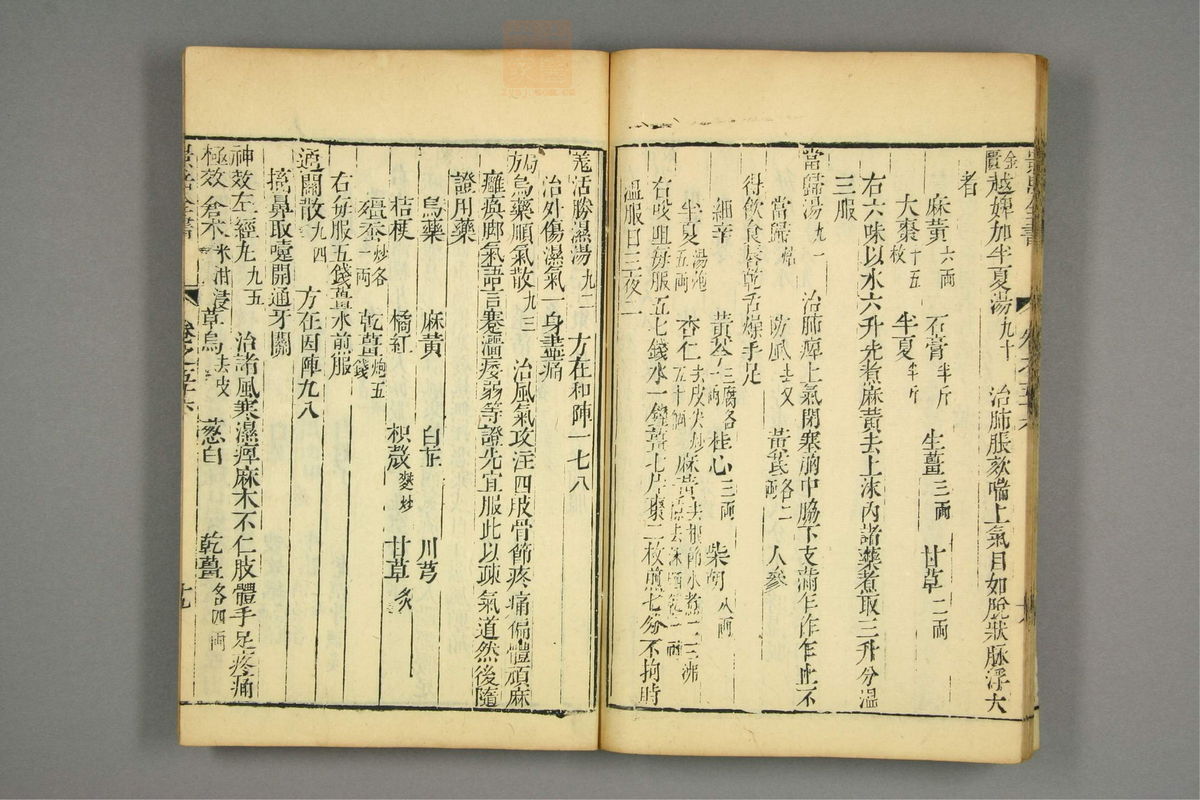 金匱越婢加半夏湯九十　治肺脹欬喘上氣目如脫狀脉浮大
者
麻黃六兩　石膏半斤　生薑三兩　甘草二兩
大棗十五枚　半夏半斤
右六味以水六升先煮麻黃去上沫內諸藥煮取三升分溫
三服
當歸湯九一　治肺痺上氣閉塞胸中脇下支滿乍作乍止不
得飲食唇乾舌燥手足
當歸　防風去叉　黃芪各二兩　人參
細辛　黃芩各一兩　桂心三兩　柴胡八兩
半夏湯泡五兩　杏仁去皮尖炒五十個　麻黃去根節水煮一二沸
右㕮咀每服五七錢水一鐘薑七片棗二枚煎七分不拘時
溫服日三夜二
羗活勝濕湯九二　方在和陣一七八
治外傷濕氣一身盡痛
局方烏藥順氣散九三　治風氣攻注四肢骨節疼痛徧體頑麻
癱瘓脚氣語言蹇澀痿弱等證先宜服此以疎氣道然後隨
證用藥
烏藥　麻黃　白芷　川芎
桔梗　橘紅　枳殼麥炒　甘草炙
殭蚕炒各一兩　乾薑炮五錢
右每服五錢薑水煎服
通關散九四　方在因陣九八
搐鼻取嚏開通牙關
神效左經丸九五　治諸風寒濕痺麻木不仁肢體手足疼痛
極效　倉术米泔浸　草烏去皮　葱白　乾薑各四兩
景岳全書　卷之五十六　九